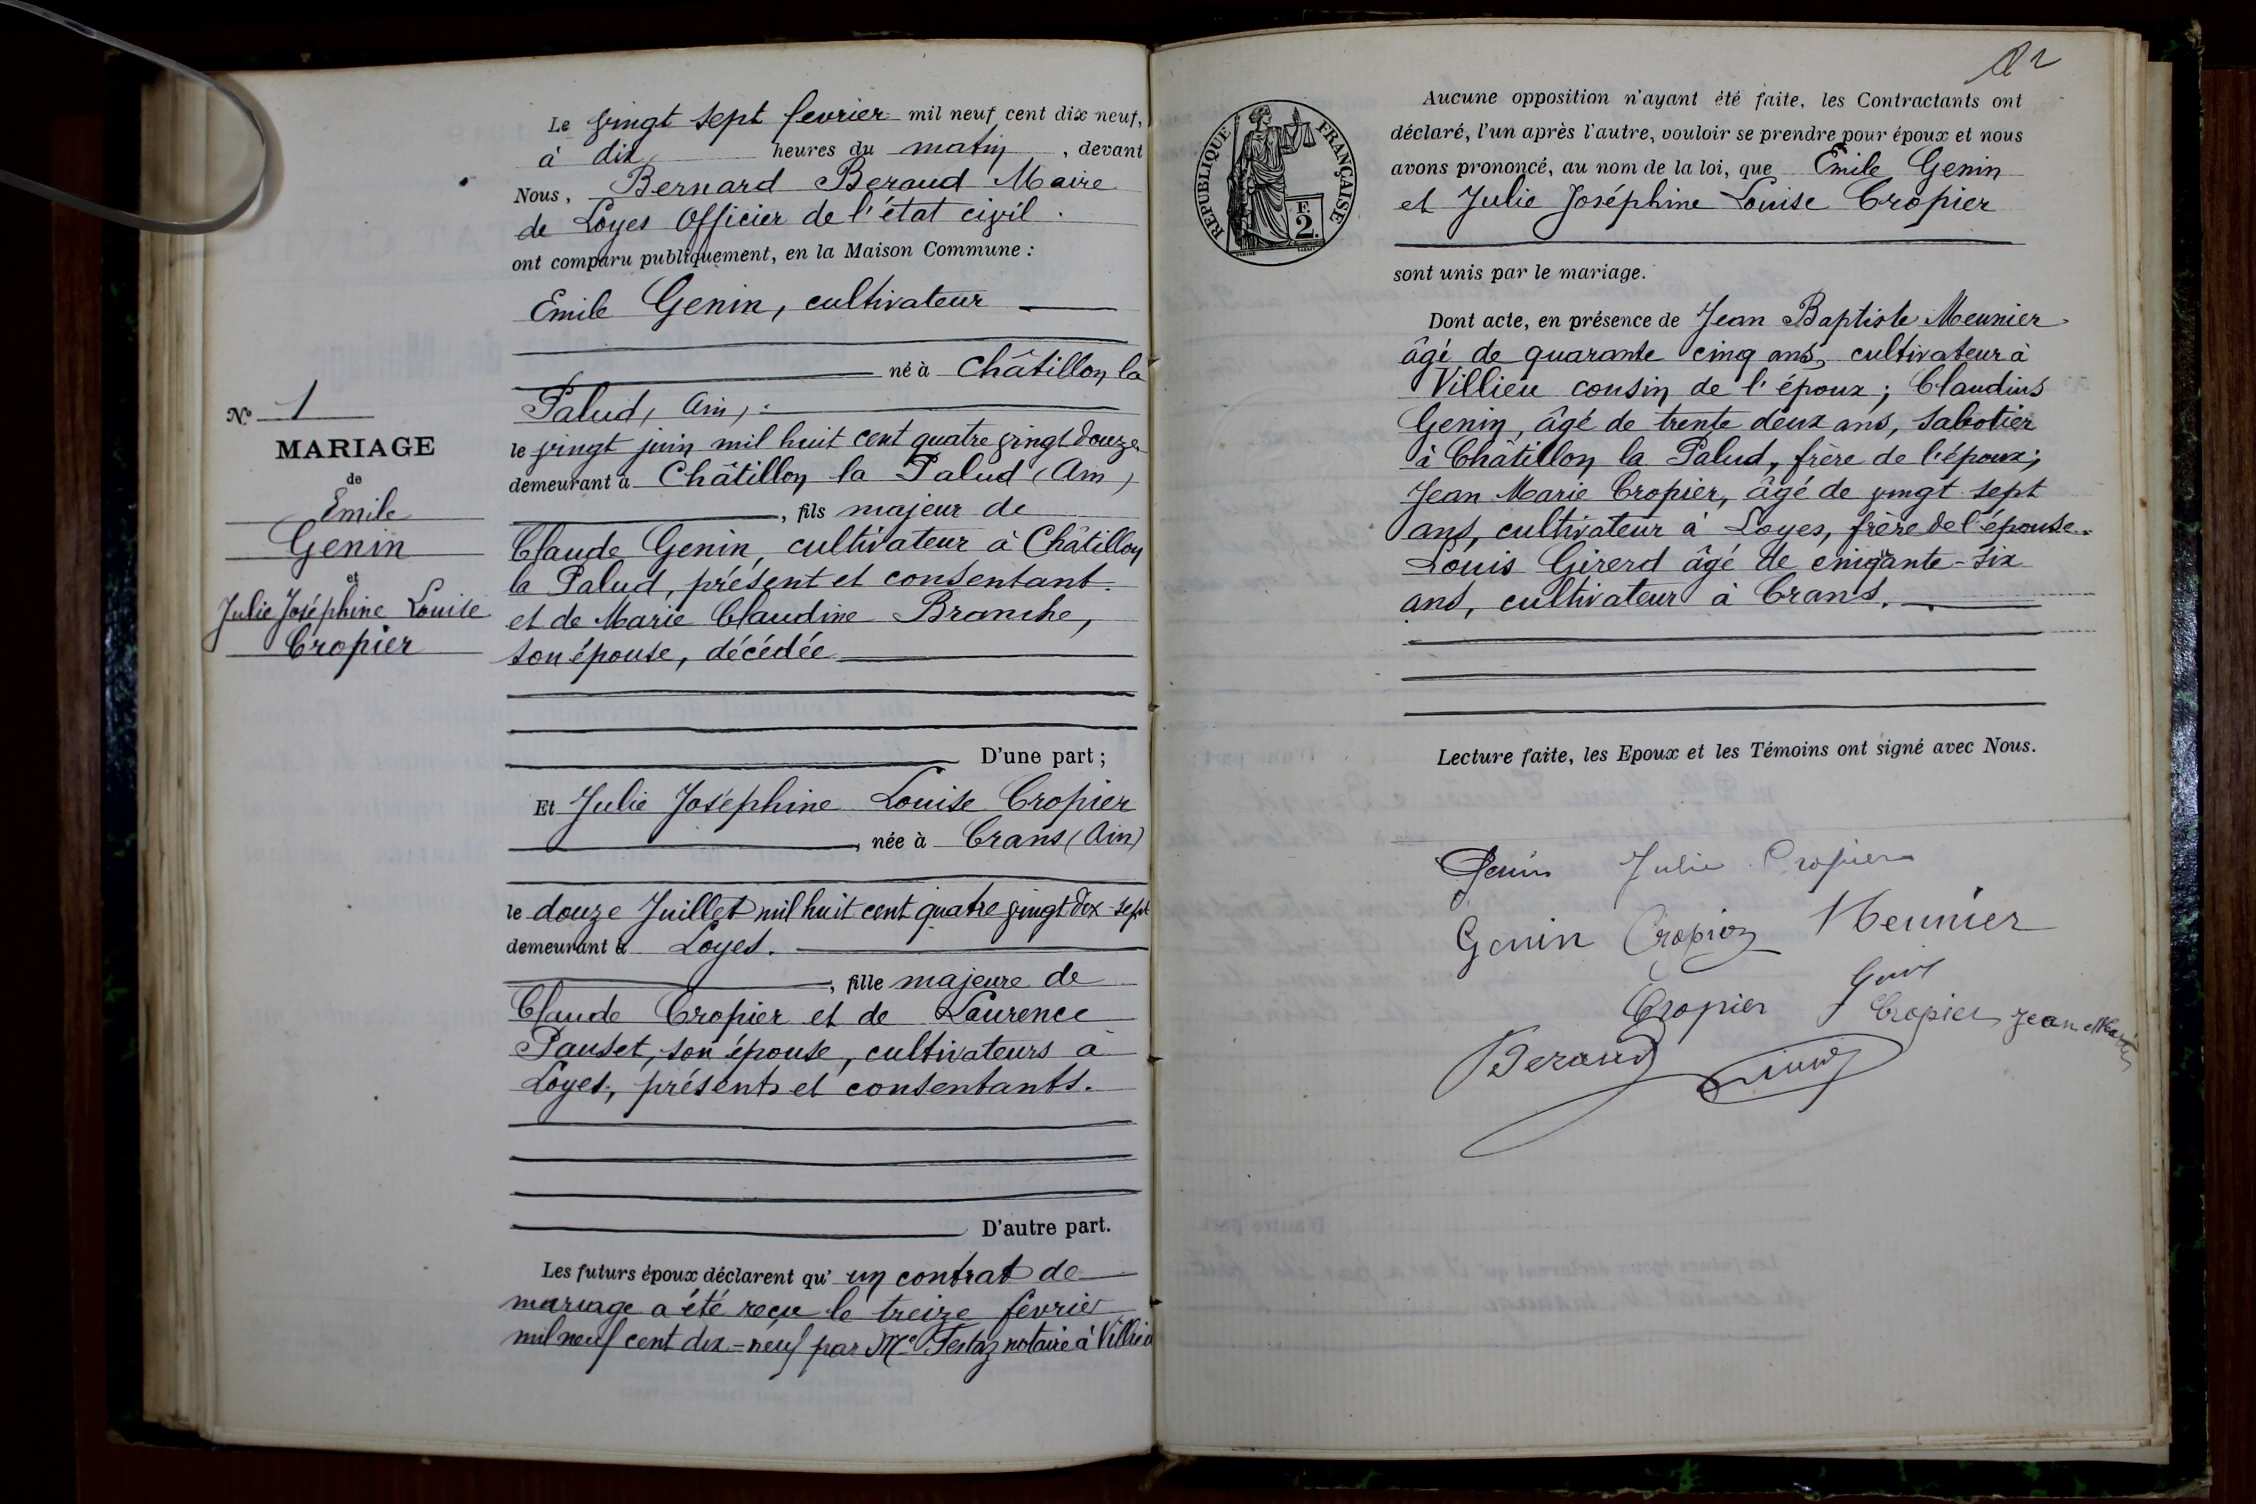 Le vingt sept fevrier mil neuf cent dix neuf,
à dix heures du matin, devant
Nous, Bernard Beraud Maire
de Loyes Officier de l'état civil.
ont comparu publiquement, en la Maison Commune :
Emile Genin, cultivateur
né à Châtillon la
Palud, (Ain),
le vingt juin mil huit cent quatre vingt douze
demeurant à Châtillon la Palud (Ain)
, fils majeur de
Claude Genin, cultivateur à Châtillon
la Palud, présent et consentant.
et de Marie Claudine Branche,
son épouse, décédée
D'une part ;
Et Julie Joséphine Louise Cropier
, née à Crans (Ain)
le douze Juillet mil huit cent quatre vingt dix-sept
demeurant à Loyes.
, fille majeure de
Claude Cropier et de Laurence
Pauset, son épouse, cultivateurs à
Loyes, présents et consentants.
D'autre part.
Les futurs époux déclarent qu'un contrat de
mariage a été reçu le treize fevrier
mil neuf cent dix-neuf par Me Festaz notaire à Villieu
N° 1
MARIAGE
de
Emile
Genin
et
Julie Joséphine Louise
Cropier
REPUBLIQUE FRANÇAISE
F
2.
Aucune opposition n'ayant été faite, les Contractants ont
déclaré, l'un après l'autre, vouloir se prendre pour époux et nous
avons prononcé, au nom de la loi, que Emile Genin
et Julie Joséphine Louise Cropier
sont unis par le mariage.
Dont acte, en présence de Jean Baptiste Meunier
âgé de quarante cinq ans, cultivateur à
Villieu cousin de l'époux ; Claudius
Genin, âgé de trente deux ans, sabotier
à Châtillon la Palud, frère de l'époux ;
Jean Marie Cropier, âgé de vingt sept
ans, cultivateur à Loyes, frère de l'épouse.
Louis Girerd âgé de cinquante-six
ans, cultivateur à Crans.
Lecture faite, les Epoux et les Témoins ont signé avec Nous.
Genin Julie Cropier
Genin Cropier Meunier
Cropier Cropier Jean Marie
Beraud